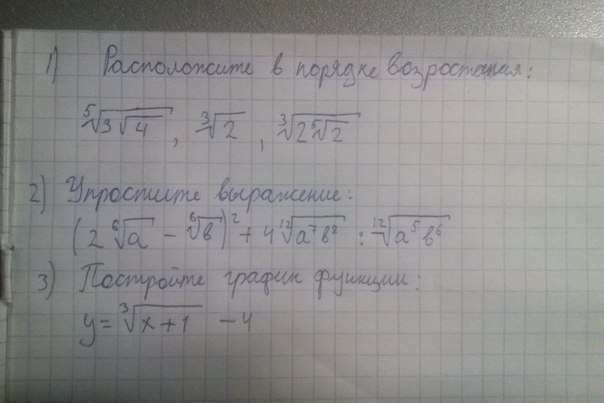 1) Расположите в порядке возростания:
⁵√(3√4), ³√2, ³√(2⁵√2)
2) Упростите выражение:
(2 ⁶√a - ⁶√b)² + 4 ¹²√(a⁷b⁸) : ¹²√(a⁵b⁶)
3) Постройте график функции:
y = ³√(x+1) - 4